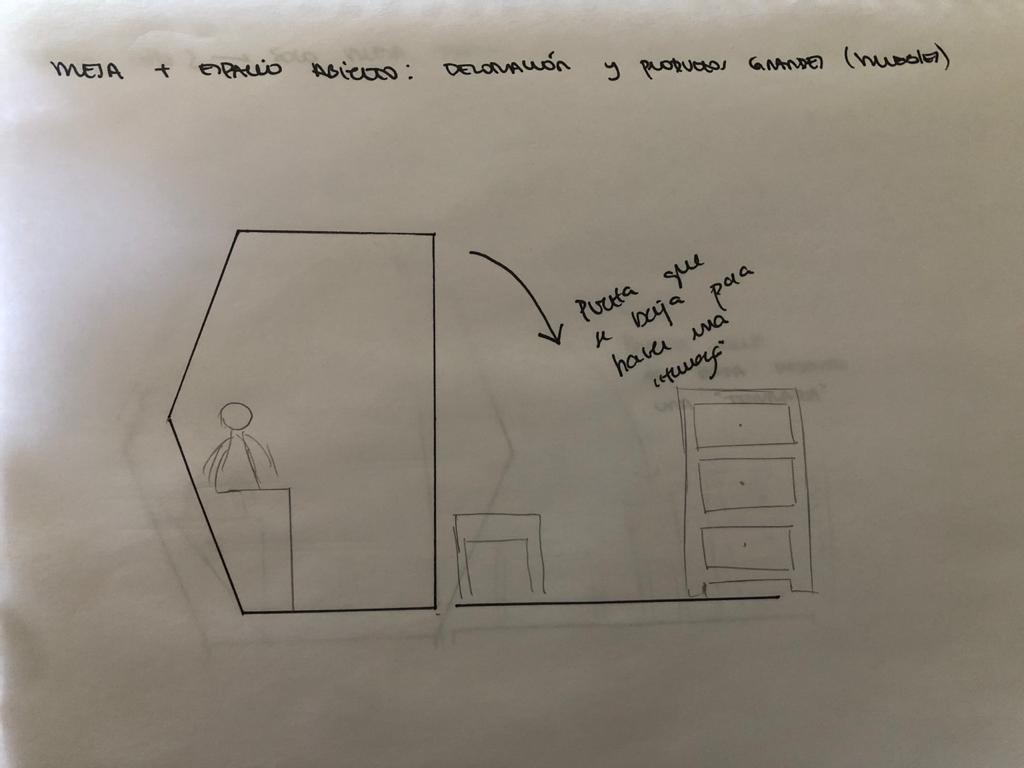 MESA + ESPACIO ABIERTO: DECORACIÓN y PRODUCTOS GRANDES (MUEBLES)
Puerta que
se baja para
hacer una